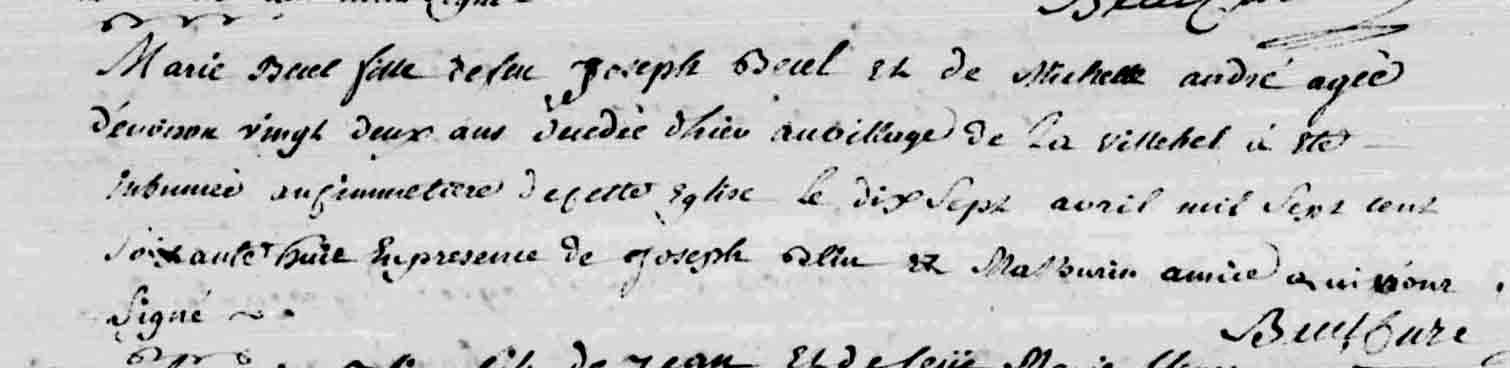 Marie Beul fille de feu Joseph Beul Et de Michelle andré agée
d'environ vingt deux ans décédée d'hier au village de La villehel à été
inhumée au cimmetiere de cette Eglise le dix Sept avril mil Sept cent
soixante huit En presence de Joseph Et Mathurin amice qui n'ont
Signé
Curé
de Jean Et de